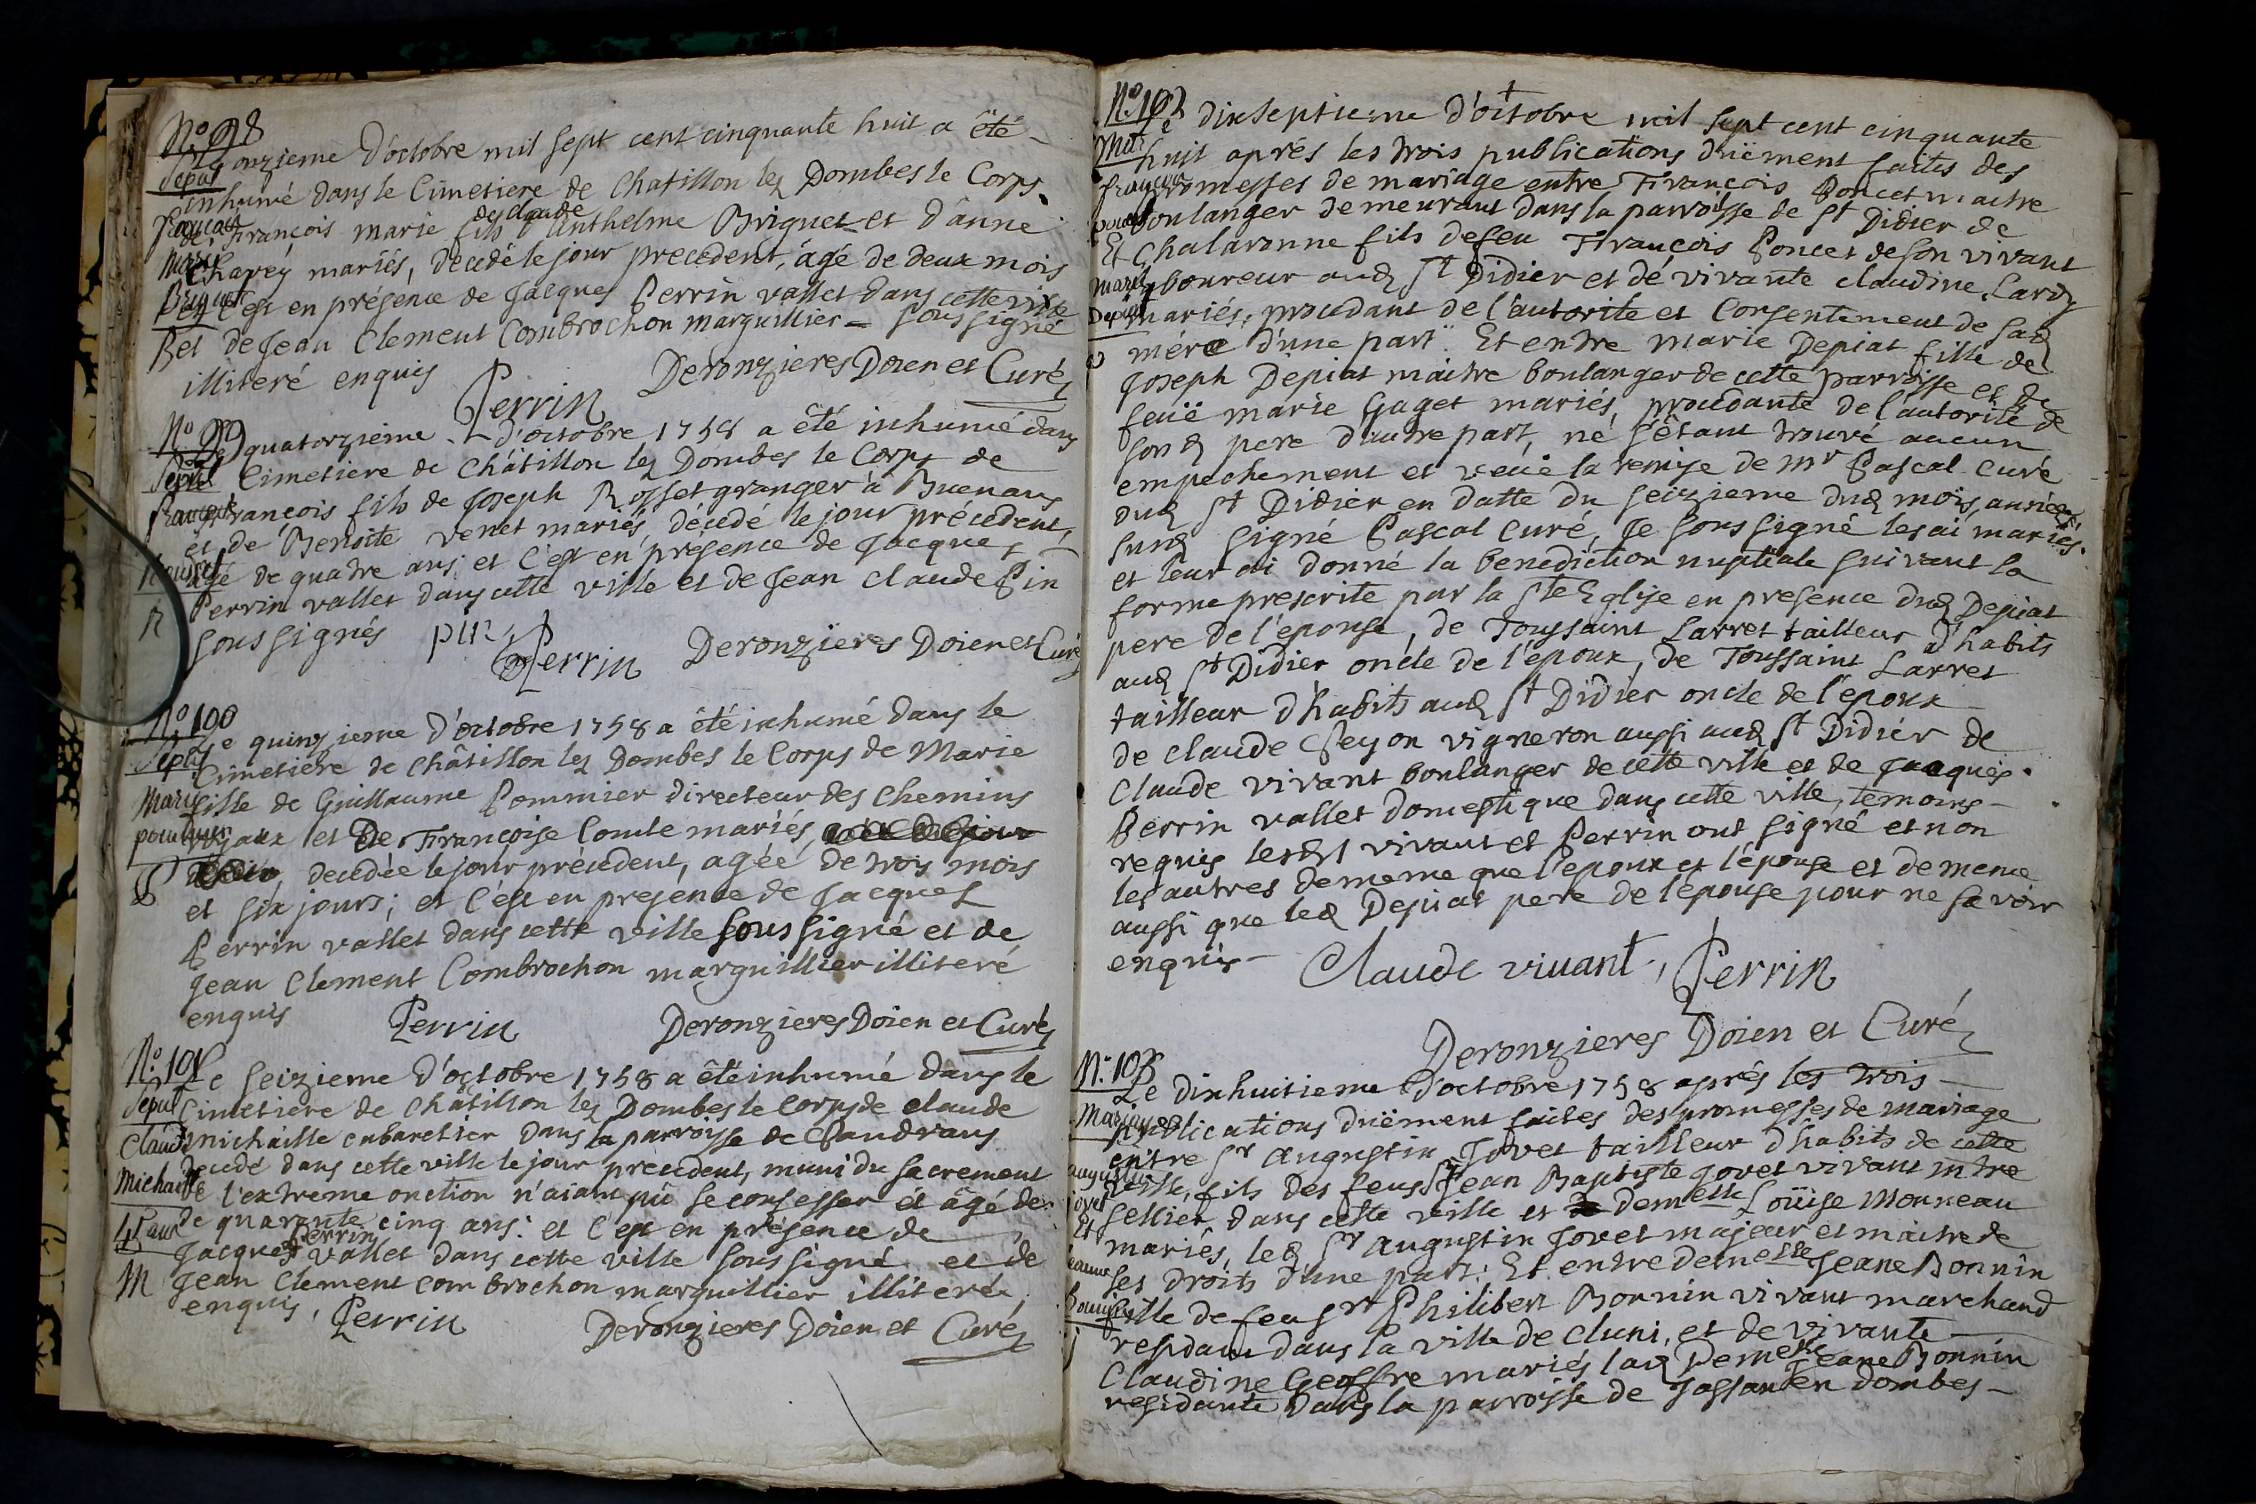 N.° 98
Sépul
Le onzieme d'octobre mil sept cent cinquante huit a êté
inhumé dans le Cimetiere de Chatillon les Dombes le Corps
françois
de claude
de françois marie fils d'Anthelme Briquet et d'anne
marie
Chapey mariés, décédé le jour precedent, âgé de deux mois
Briquet
et c'est en présence de Jacques Perrin vallet dans cette ville
B
et de Jean Clement Combrochon marguillier soussigné
illiteré enquis
Perrin
Deronzieres Doien et Curé
N.° 99
Sépul
Le quatorzieme d'octobre 1758 a êté inhumé dans
le Cimetiere de Châtillon les Dombes le Corps de
françois
françois fils de Joseph Rosset granger à Buenans
et de Benoite venet mariés, décédé le jour précedent,
Rousset
âgé de quatre ans; et c'est en présence de Jacques
R
Perrin vallet dans cette ville et de Jean Claude Pin
soussignés
pin
Perrin
Deronzieres Doien et Curé
N.° 100
Sépul
Le quinzieme d'octobre 1758 a êté inhumé dans le
Cimetiere de Châtillon les Dombes le Corps de Marie
Marie
fille de Guillaume Pommier directeur des chemins
pommier
royaux et de Françoise Comte mariés,
P
decedée le jour précedent, agée de trois mois
et six jours; et c'est en presence de Jacques
Perrin vallet dans cette ville soussigné et de
Jean Clement Combrochon marguillier illiteré
enquis
Perrin
Deronzieres Doien et Curé
N.° 101
Sépul
Le seizieme d'octobre 1758 a êté inhumé dans le
Cimetiere de Châtillon les Dombes le Corps de claude
Claude
michaille cabaretier dans la parroisse de Chandrans
Michaille
decedé dans cette ville le jour précedent, muni du sacrement
de l'extreme onction n'aiant pû se confesser et âgé de
45 ans
de quarante cinq ans: et c'est en présence de
Perrin
Jacques vallet dans cette ville soussigné et de
M
Jean Clement combrochon marguillier illiteré
enquis,
Perrin
Deronzieres Doien et Curé
N.° 102
Mar
Le dixseptieme d'octobre mil sept cent cinquante
huit aprés les trois publications duëment faites des
françois
promesses de mariage entre François Poncet maitre
poncet
boulanger demeurant dans la parroisse de St Didier de
Et
Chalaronne fils de feu François Poncet de son vivant
marie
laboureur aud St Didier et de vivante claudine Larey
Depiat
mariés, procedant de l'autorite et consentement de sad
mére d'une part. Et entre marie Depiat fille de
Joseph Depiat maitre boulanger de cette parroisse et de
feuë marie Gaget mariés, procedante de l'autorité de
sond pere d'autre part, né s'êtant trouvé aucun
empechement et veüe la remise de mr Pascal curé
dud St Didier en datte du seizieme dud mois, année
susd signé Pascal curé, Je soussigné les ai mariés
et leur ai donné la benediction nuptiale suivant la
forme prescrite par la Ste Eglise en presence dud Depiat
pere de l'epouse, de Toussaint Larret tailleur d'habits
aud St Didier oncle de l'époux, de Toussaint Larret
tailleur d'habits aud St Didier oncle de l'epoux
de claude Peyon vigneron aussi aud St Didier de
Claude vivant boulanger de cette ville et de Jacques
Perrin vallet domestique dans cette ville, temoins
requis lesd vivant et Perrin ont signé et non
les autres de meme que l'epoux et l'épouse et de meme
aussi que led Depiat pere de l'épouse pour ne savoir
enquis
Claude vivant,
Perrin
Deronzieres Doien et Curé
N.° 103
Le dixhuitieme d'octobre 1758 aprés les trois
Mariage
publications duëment faites des promesses de mariage
entre Sr Augustin Jovet tailleur d'habits de cette
augustin
ville, fils des feus Sr Jean Baptiste Jovet vivant mtre
jovet
sellier dans cette ville et demelle Loüise Monneau
Et
mariés, led Sr Augustin Jovet majeur et maitre de
jeanne
ses droits d'une part: Et entre demelle Jeane Bonnin
Bonnin
fille de feu Sr Philibert Bonnin vivant marchand
J
residant dans la ville de Cluni, et de vivante
Claudine Geoffre mariés lad Demelle Jeane Bonnin
residante dans la parroisse de Jassans en dombes